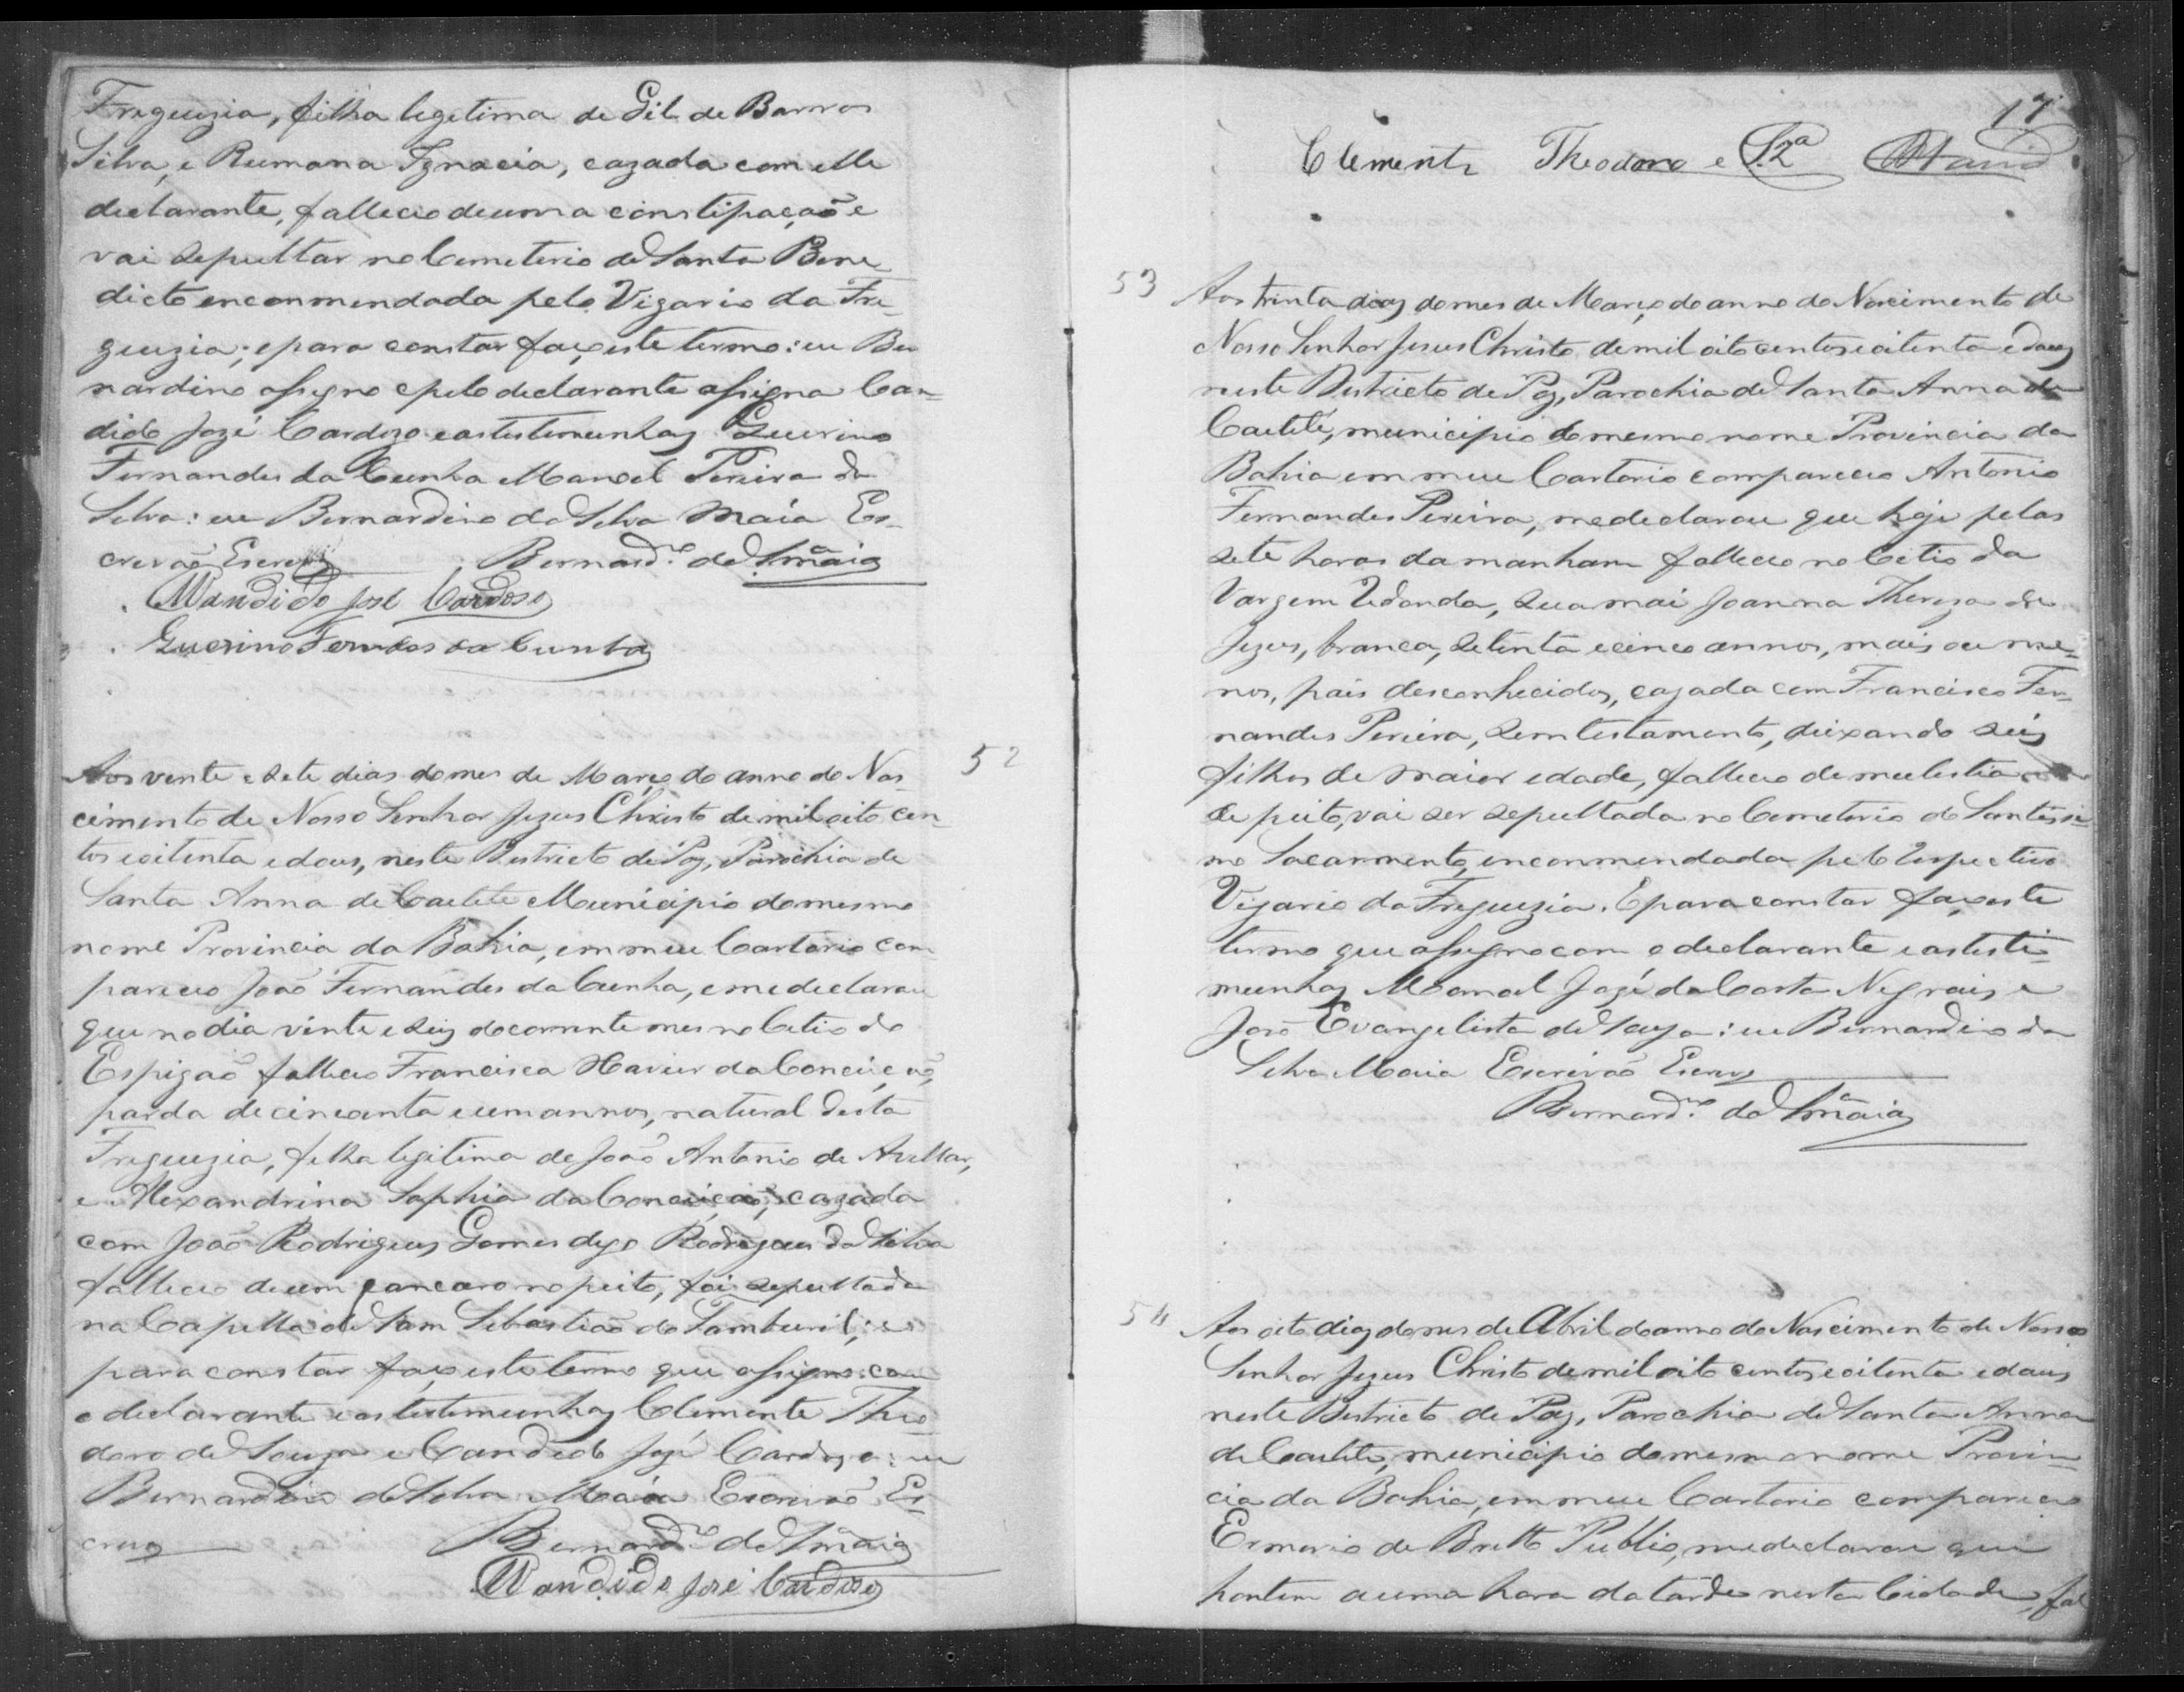 Freguezia, filha legitima de Gil de Barros
Silva, e Rumana Ignacia, cazada com elle
declarante, falleceo de uma constipação e
vai sepultar no Cemeterio de Santo Bene
dicto enconmendada pelo Vigario da Fre-
guezia; e para constar faço este termo: eu Ber
nardino assigno e pelo declarante assigna Can-
dido Jozé Cardozo e as testemunhas Guerino
Fernandes da Cunha e Manoel Pereira da
Silva: eu Bernardino da Silva Maia Es-
crivaõ Escrevy Bernard.º da S.ª Maia
Candido José Cardoso
Guerino Fernades da Cunha
52
Aos vente e sete dias do mes de Março do anno do Nas
cimento de Nosso Senhor Jezus Christo de mil oito cen
tos e oitenta e dous, neste Destricto de Paz, Parochia de
Santa Anna de Caetete Municipio do mesmo
nome Provincia da Bahia, em meu Cartorio com
pareceo João Fernandes da Cunha, e me declarou
que no dia vinte e seis do corrente mes no Citio do
Espigaõ falleceo Francisca Xavier da Conceição,
parda de cincoenta e um annos, natural desta
Freguezia, filha legitima de João Antonio de Avellar,
e Alexandrina Sophia da Conceição, cazada
com João Rodrigues Gomes digo Rodrigues da Silva
falleceo de um cancaro no peito, foi sepultada
na Capella de Sam Sebastião do Tamburil; e
para constar faço este termo que assigno com
o declarante e as testemunhas Clemente Theo
doro de Souza e Candido Jozé Cardozo: eu
Bernardino da Silva Maia Escrivaõ Es
crevy Bernard.º da S.ª Maia
Candido José Cardoso
17
Clemente Theodoro e S.za
53
Aos trinta dias do mes de Março do anno do Nascimento de
Nosso Senhor Jesus Christo de mil oito centos e oitenta e dous
neste Destricto de Paz, Parochia de Santa Anna de
Caetité, municipio do mesmo nome Provincia da
Bahia em meu Cartorio compareceo Antonio
Fernandes Pereira, me declarou que hoje pelas
sete horas da manham falleceo no Citio da
Vargem Redonda, sua mai Joanna Thereza de
Jezus, branca, setenta e cinco annos, mais ou me-
nos, pais desconhecidos, cazada com Francisco Fer-
nandes Pereira, sem testamento, deixando seis
filhos de maior edade, falleceo de mulestia
de peito, vai ser sepultada no Cemeterio do Santissi-
mo Sacarmento, enconmendada pelo respectivo
Vigario da Freguezia. E para constar faço este
termo que assigno com o declarante e as teste-
munhas Manoel Jozé da Costa Negrais e
João Evangelista de Souza: eu Bernardino da
Silva Maia Escrivaõ Escrevy
Bernard.º da S.ª Maia
54
Aos oito dias do mes de Abril do anno do Nascimento de Nosso
Senhor Jezus Christo de mil oito centos e oitenta e dous
neste Destricto de Paz, Parochia de Santa Anna
de Caetite, municipio do mesmo nome Provin-
cia da Bahia, em meu Cartorio compareceo
Ermerio de Britto Publio, me declarou que
hontem a uma hora da tarde nesta Cidade, fal